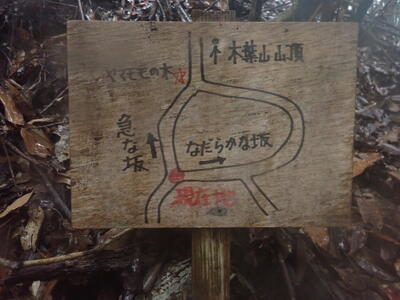 木葉山山頂
やまモモの木
急な坂
なだらかな坂
現在地